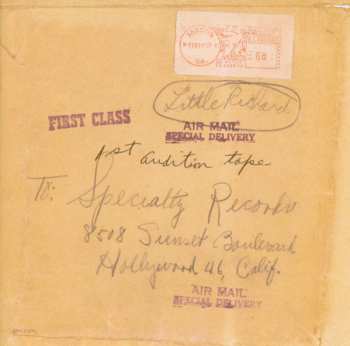 Little Richard
FIRST CLASS
AIR MAIL
SPECIAL DELIVERY
1st audition tape
To: Specialty Records
8508 Sunset Boulevard
Hollywood 46, Calif.
AIR MAIL
SPECIAL DELIVERY